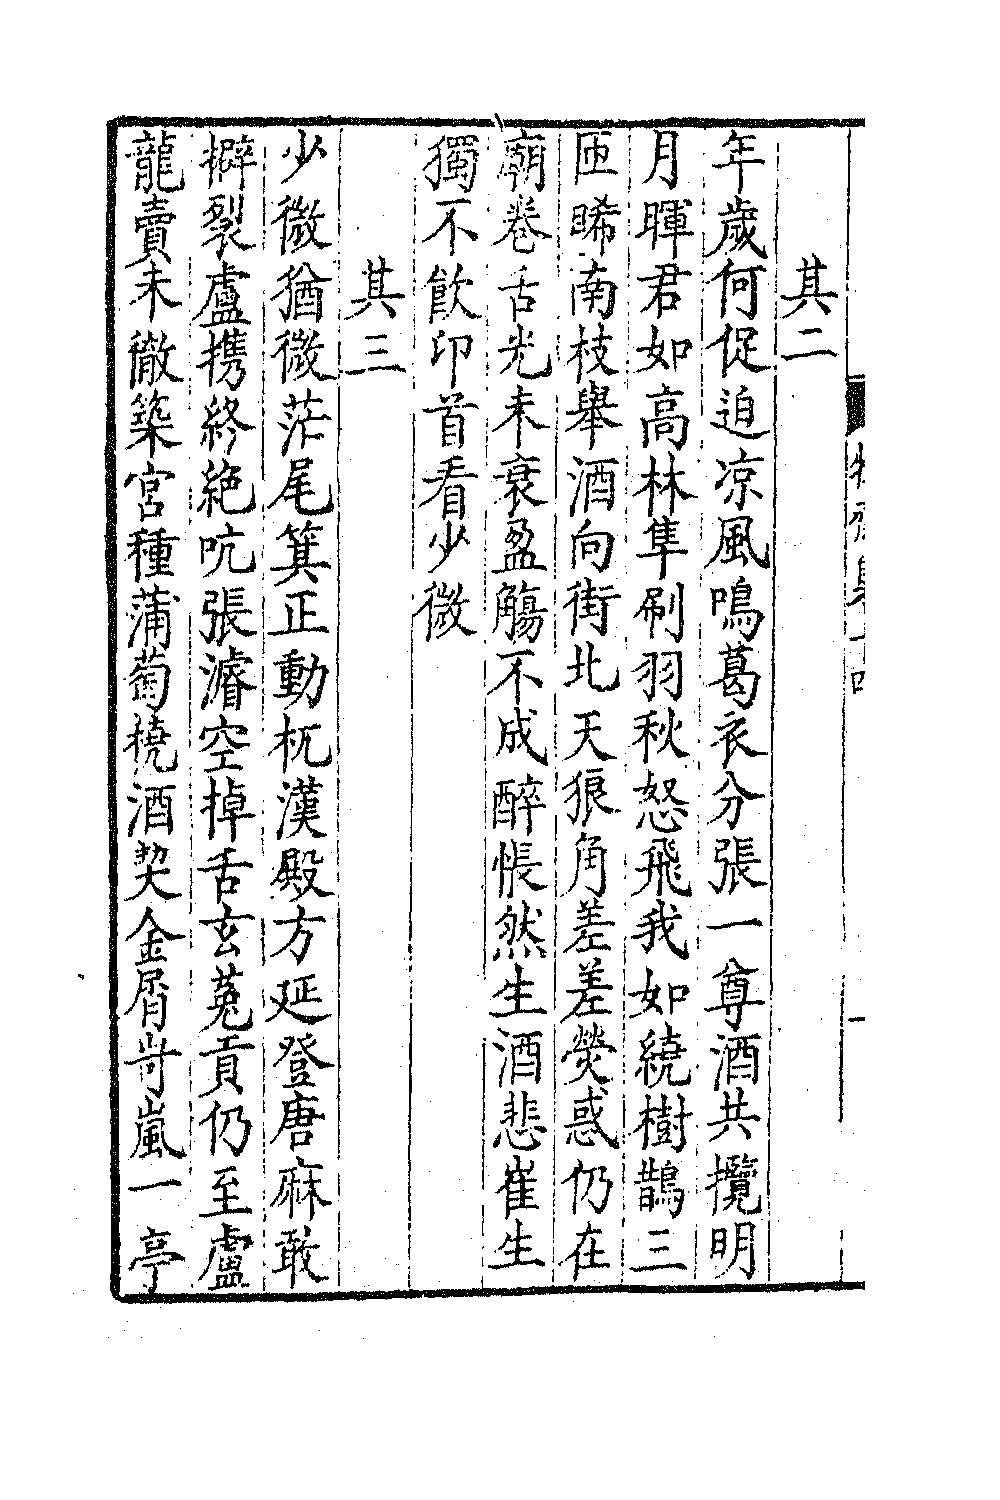 其二
年歲何促迫凉風鳴葛衣分張一尊酒共攬明
月暉君如高林隼刷羽秋怒飛我如繞樹鵲三
匝睎南枝舉酒向街北天狼角差差熒惑仍在
廟卷舌光未衰盈觴不成醉悵然生酒悲崔生
獨不飲卬首看少微
其三
少微猶微茫尾箕正動杌漢殿方延登唐麻敢
擗裂盧攜終絶吭張濬空掉舌玄菟貢仍至盧
龍賣未徹築宮種蒲萄橈酒契金屑岢嵐一亭